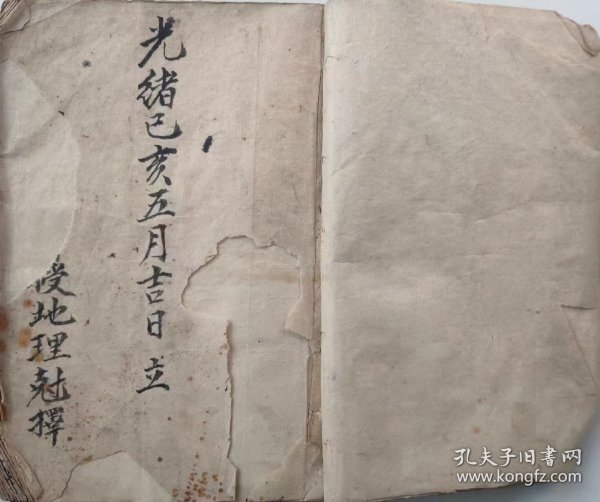 光緒己亥五月吉日立
授地理尅擇
孔夫子旧书网
www.kongfz.com